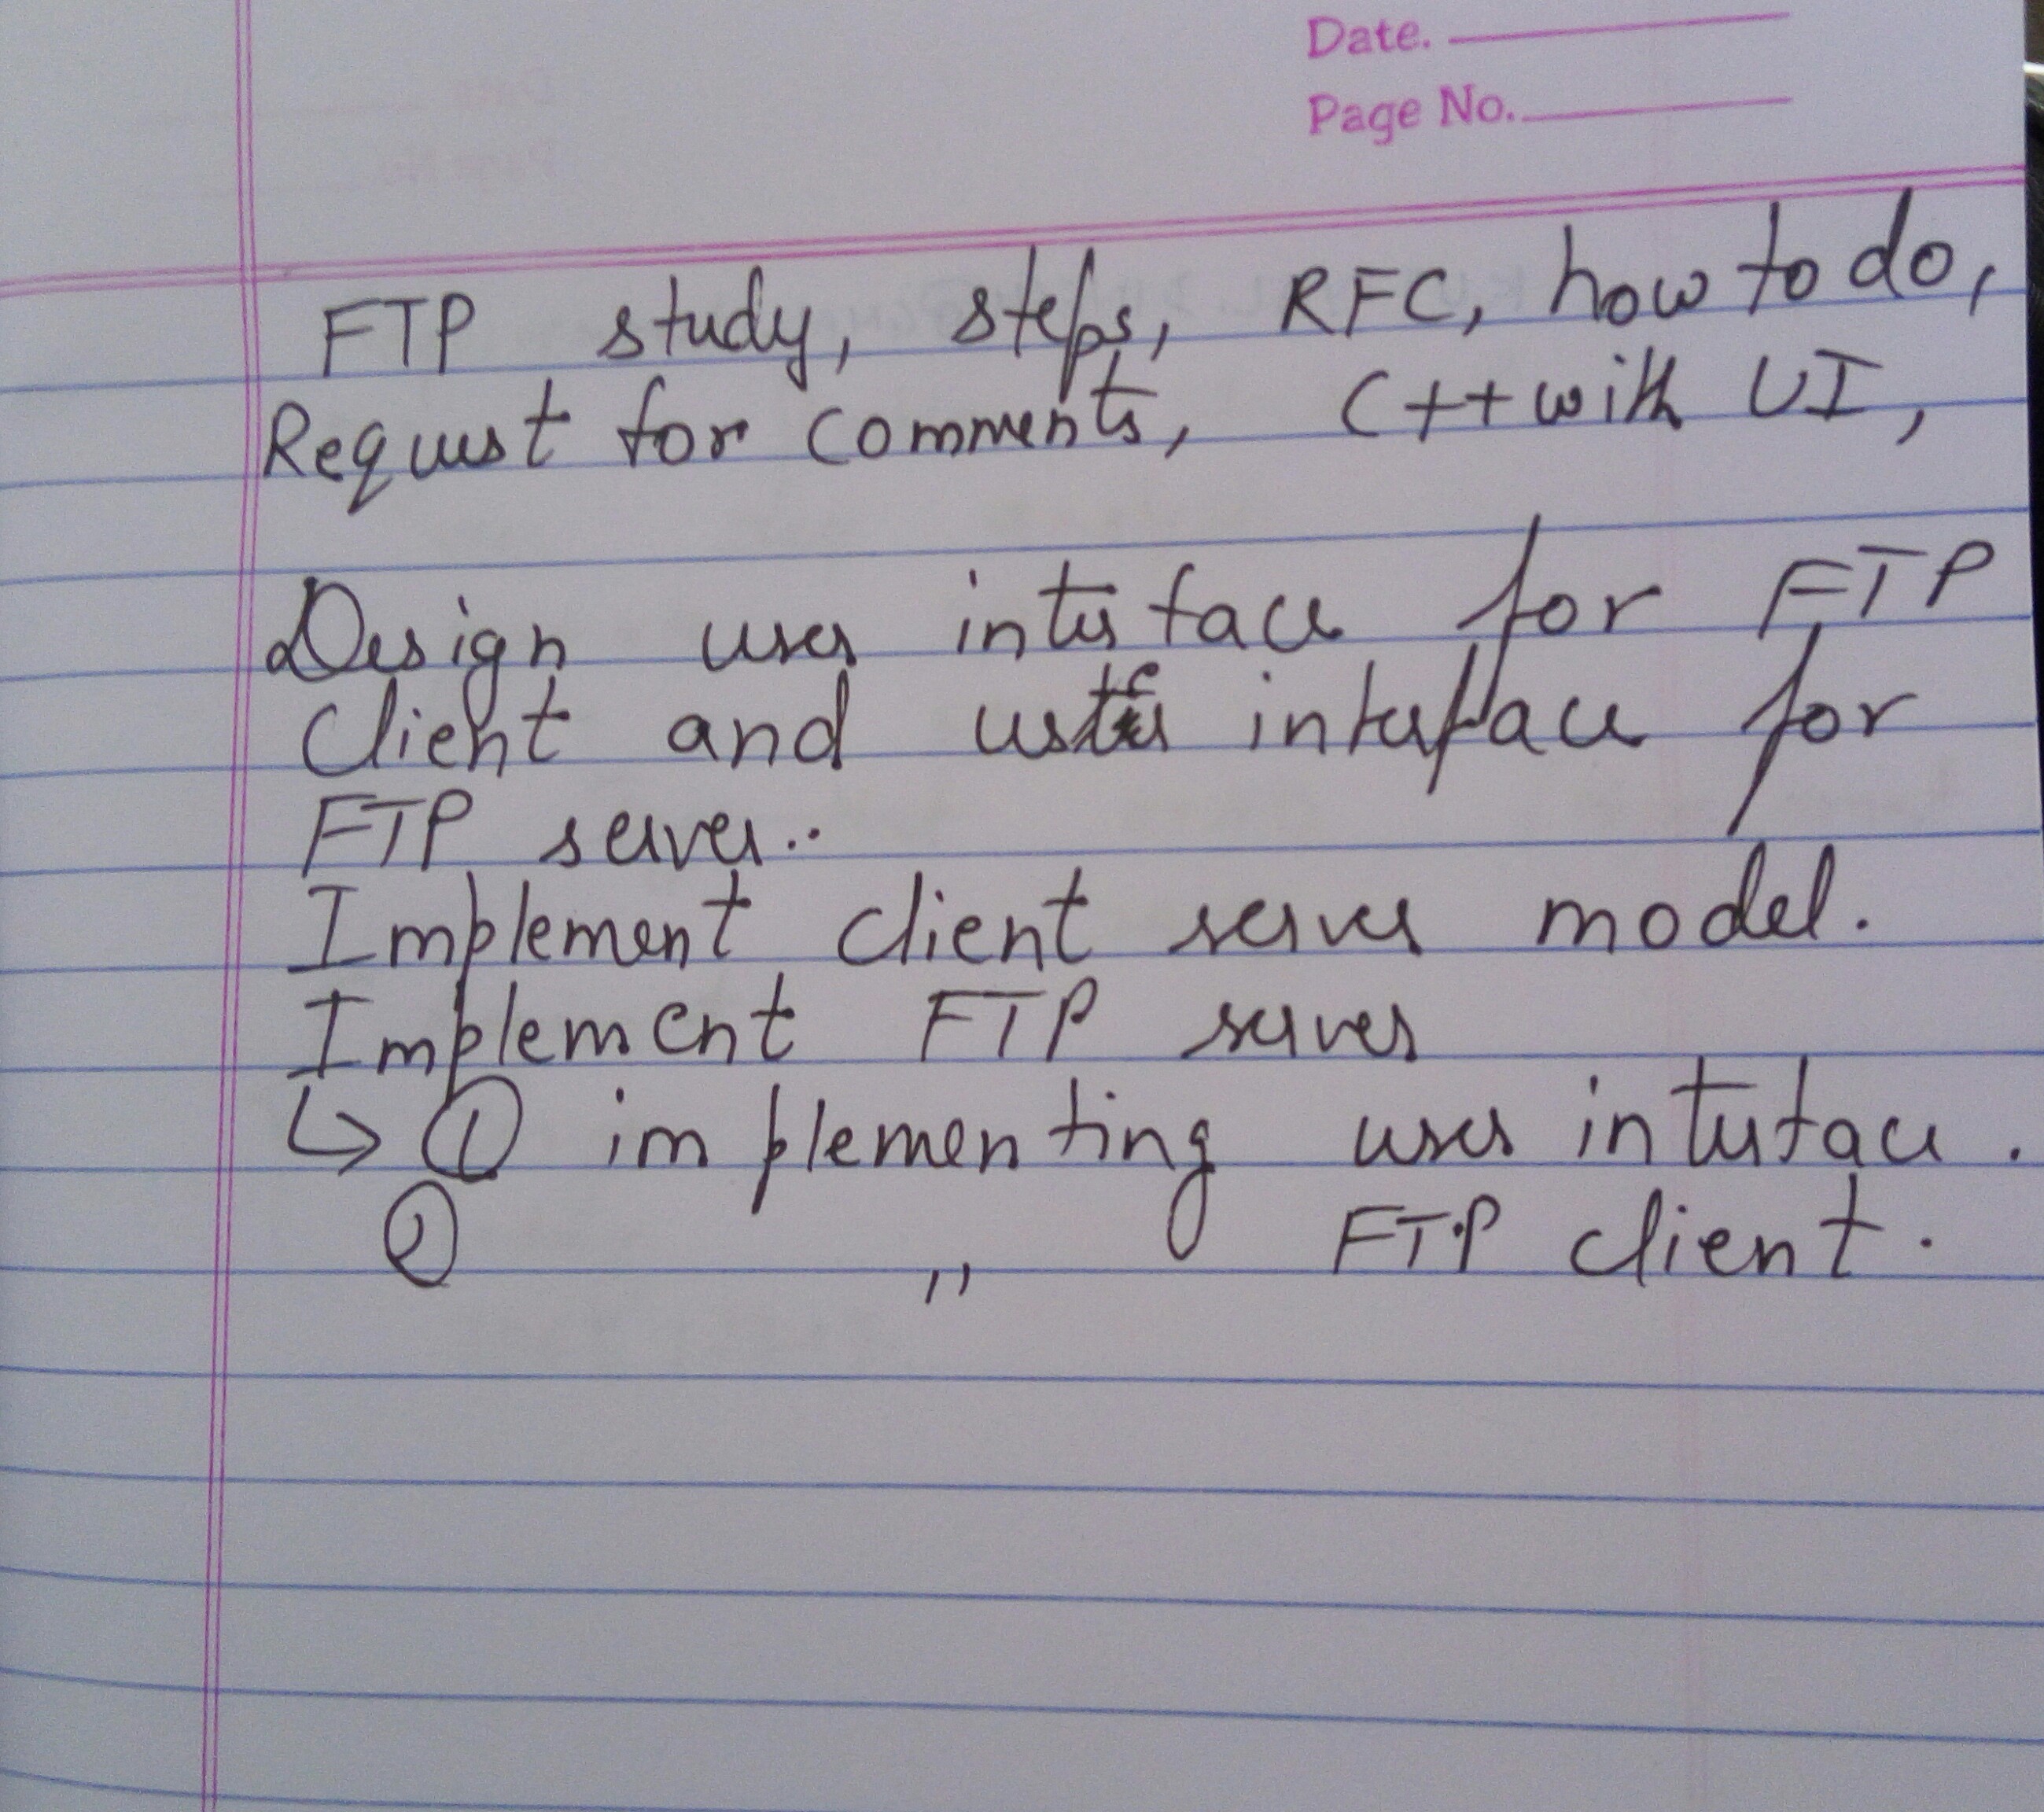 Date.
Page No.
FTP study, steps, RFC, how to do,
Request for comments, C++ with UI,
Design user interface for FTP
Client and user interface for
FTP server..
Implement client server model.
Implement FTP server
↳ ① implementing user interface.
② ,, FTP client.